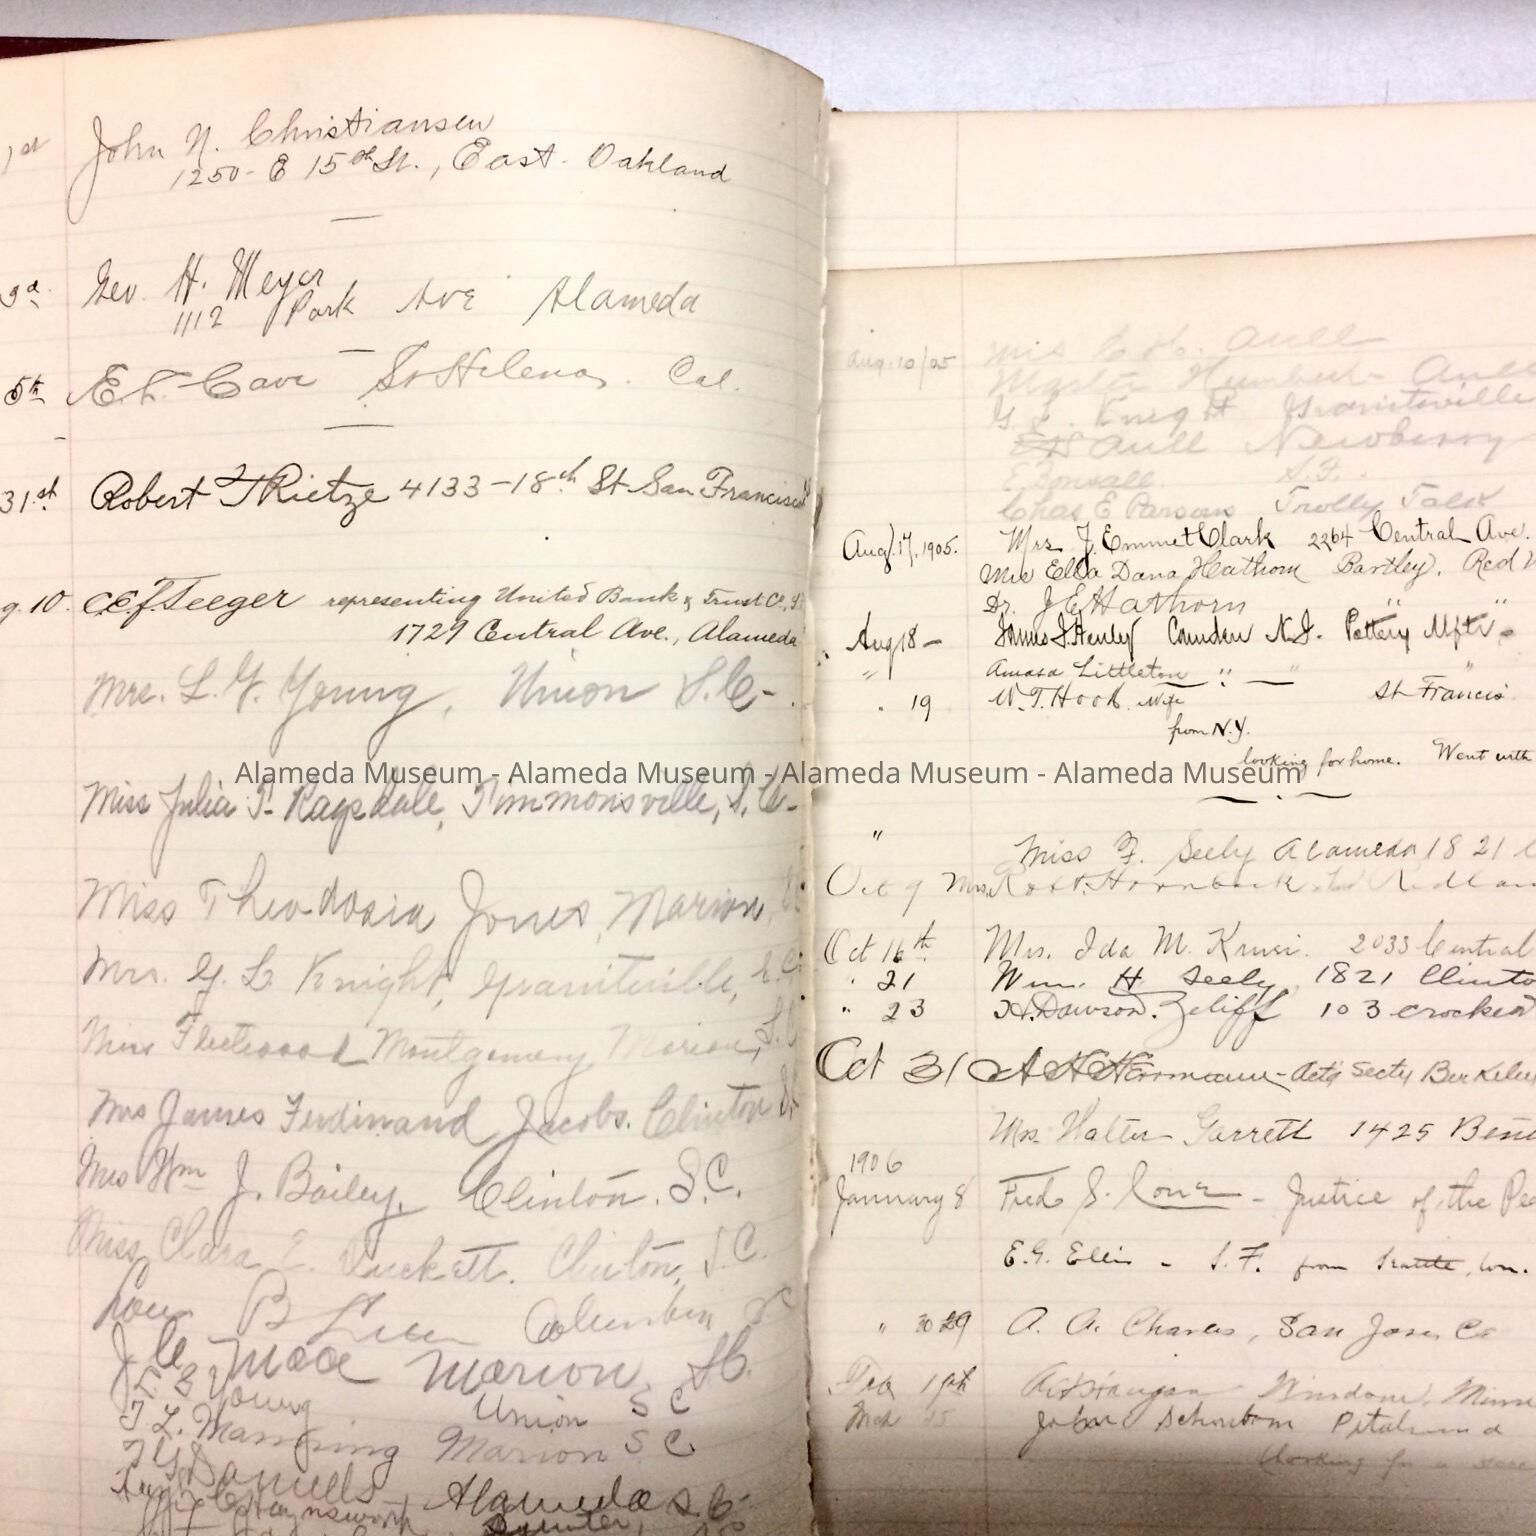 1st
John N. Christiansen
1250 - E 15th St., East Oakland
Geo. H. Meyer
1112 Park Ave Alameda
5th
St Helena, Cal.
31st
Robert T Rietze 4133-18th St San Francisco
g. 10
Teeger representing United Bank & Trust Co.,
1729 Central Ave., Alameda
Mrs. L. G. Young, Union S.C-
Miss Julia T. Ragsdale, Timmonsville, S.C-
Miss Theodosia Jones, Marion,
Mrs. G. L Knight, Graniteville, S.C.
Miss Fleetwood Montgomery, Marion, S.C
Mrs James Ferdinand Jacobs. Clinton
Mrs Wm J. Bailey, Clinton. S.C.
Miss Clara E Duckett. Clinton, S.C.
B Columbia SC
J C Mace Marion, SC.
T. B Young Union S C
T. L. Manning Marion S C
Daniells
Alameda
Haynsworth Sumter,
Aug. 10/05
Mrs E H. Aull
Master Humbert Aull
G. L. Knight Graniteville
EH Aull Newberry
E Bonsall. S.F.
Chas E Parsons Trolly Talk
Aug. 17, 1905.
Mrs J. Emmet Clark 2264 Central Ave.
Mrs Ella Dana Hathorn Bartley, Red
Dr. J E Hathorn " "
Aug 18 -
James J. Henley Camden N.J. Pottery Mftr
"
Amasa Littleton " — " "
" 19
W. T. Hook wife St Francis
from N.Y.
looking for home. Went with
Alameda Museum - Alameda Museum - Alameda Museum - Alameda Museum
"
Miss F. Seely Alameda 1821
Oct 9 Mrs. Robt. Hornbeck
Oct 16th
Mrs. Ida M. Krusi. 2033 Central
" 21
Wm. H Seely, 1821 Clinto
" 23
A. Dawson. Zeliff 103 Crocker
Oct 31
Acty Secty Berkeley
Mrs Walter Garrett 1425
1906
January 8
Fred S. - Justice of the Pe
E. G. Ellis - S. F. from Seattle, Wn.
" 29
A. A. San Jose, Ca
Windom, Minn
Mch 25
Petaluma
looking for a